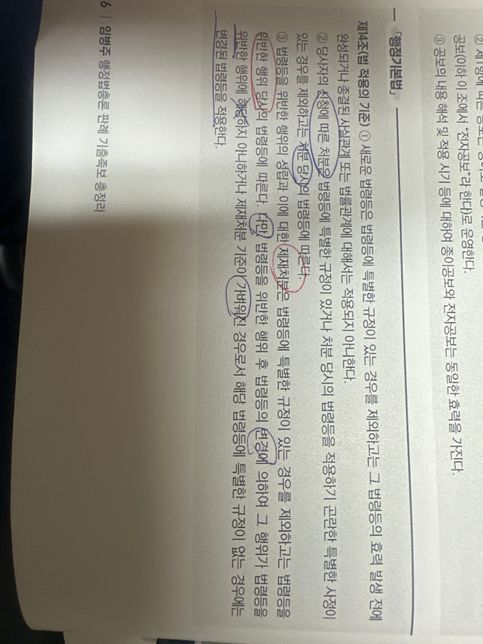 공보(이하 이 조에서 "전자공보"라 한다)로 운영한다.
③ 공보의 내용 해석 및 적용 시기 등에 대하여 종이공보와 전자공보는 동일한 효력을 가진다.
「행정기본법」
제14조(법 적용의 기준) ① 새로운 법령등은 법령등에 특별한 규정이 있는 경우를 제외하고는 그 법령등의 효력 발생 전에
완성되거나 종결된 사실관계 또는 법률관계에 대해서는 적용되지 아니한다.
② 당사자의 신청에 따른 처분은 법령등에 특별한 규정이 있거나 처분 당시의 법령등을 적용하기 곤란한 특별한 사정이
있는 경우를 제외하고는 처분 당시의 법령등에 따른다.
③ 법령등을 위반한 행위의 성립과 이에 대한 제재처분은 법령등에 특별한 규정이 있는 경우를 제외하고는 법령등을
위반한 행위 당시의 법령등에 따른다. 다만, 법령등을 위반한 행위 후 법령등의 변경에 의하여 그 행위가 법령등을
위반한 행위에 해당하지 아니하거나 제재처분 기준이 가벼워진 경우로서 해당 법령등에 특별한 규정이 없는 경우에는
변경된 법령등을 적용한다.
6 | 임병주 행정법총론 판례 기출축보 총정리